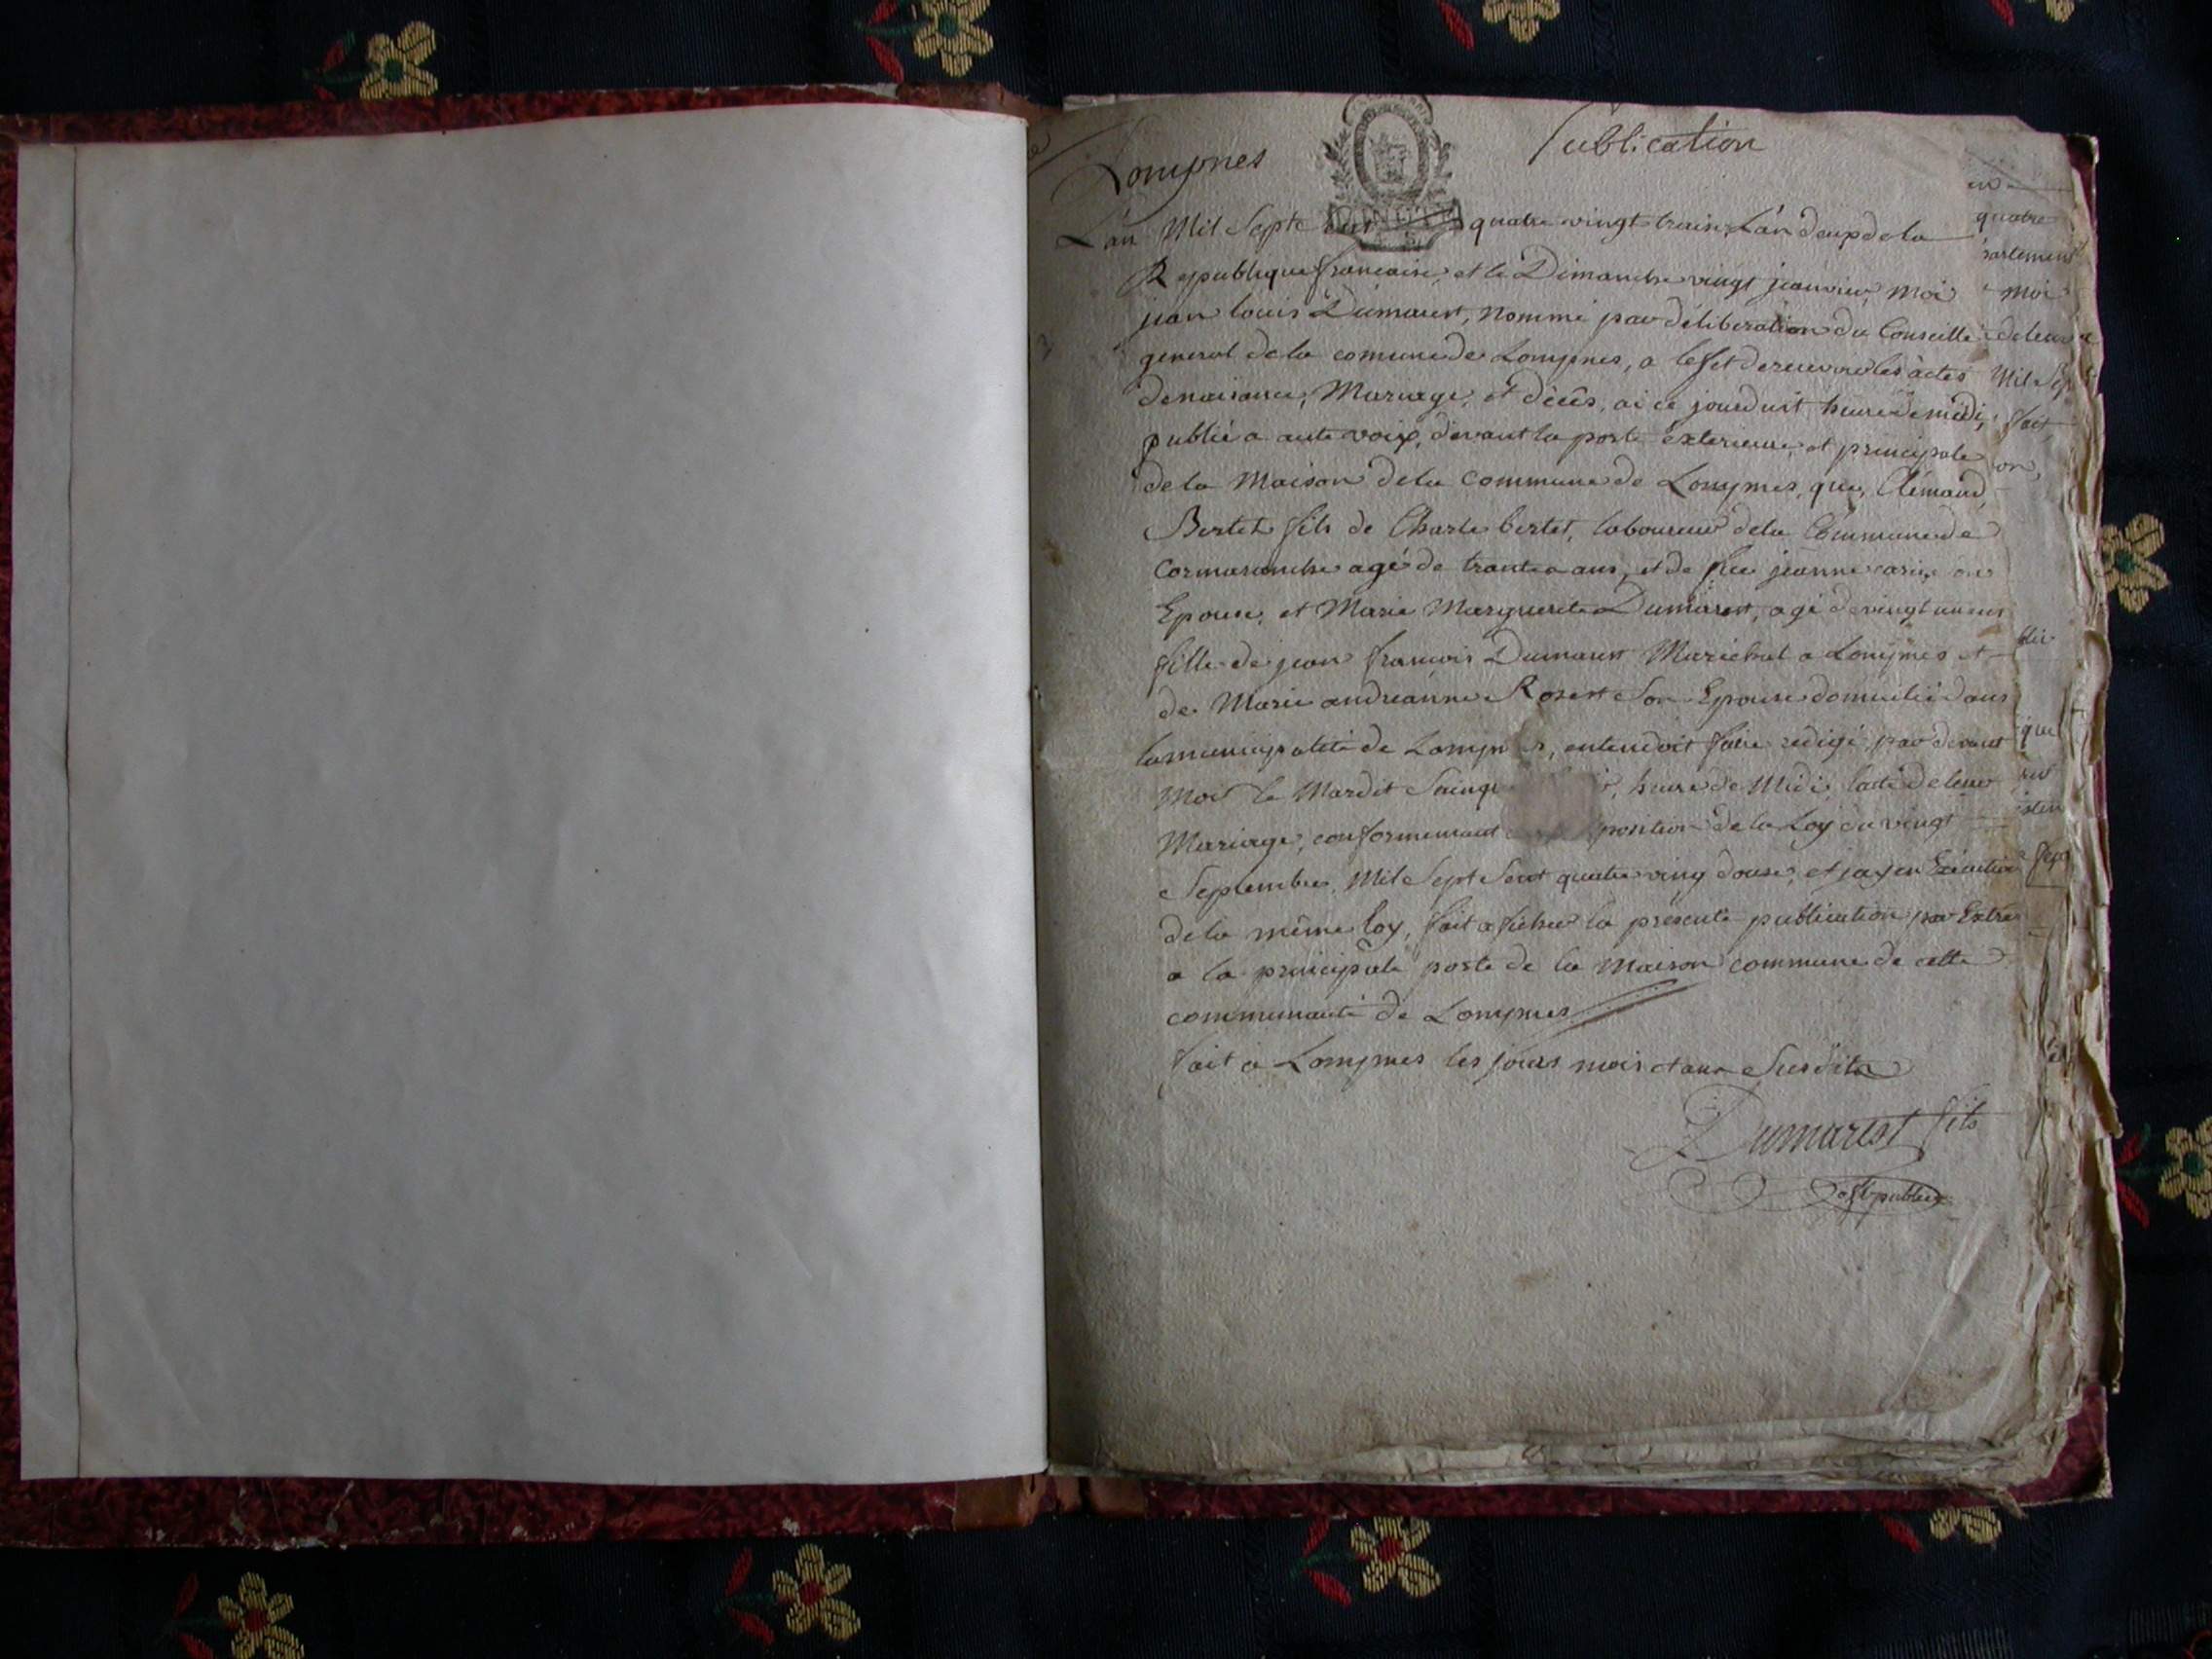 Lompnes
Publication
L'an Mil Sept quatre vingt traise, L'an deux de la
Republique francaise, et le Dimanche vingt jeanvier, Moi
jean louis Dumarest, nommé par déliberation du Conseille
general de la comune de Lompnes, a leffet de recevoir les àctes
de naisance, Mariage, et décès, ai ce jourduit heure de midi,
publié a aute voix, devant la porte exterieure et principale
de la Maison dela commune de Lompnes, que, Clémand
Bertet fils de Charle bertet, laboureur dela Commune de
Cormaranche agé de trante ans, et de feu jeanne
Epouse, et Marie Marguerite Dumarest, agé de vingt un ans
fille de jean francois Dumarest Maréchal a Lompnes et
de Marie andréanne Rosest Son Epouse domicilié dans
la municipalité de Lompn s, entendoit faire rédigé par devant
Moi le Mardit Sainqt , heure de Midi, lacte de leur
Mariage, conformemant position de la Loy du vingt
Septembre, Mil Sept Sent quatre ving douse, et jay en Exécution
de la même loy, fait afficher la présente publication par Extrè
a la principale porte de la Maison commune de cette
communauté de Lompnes
fait à Lompnes les jours mois et an Susdits
Dumarest fils
off publics
quatre
moi
de leur
Mil Sep
fait
on,
que